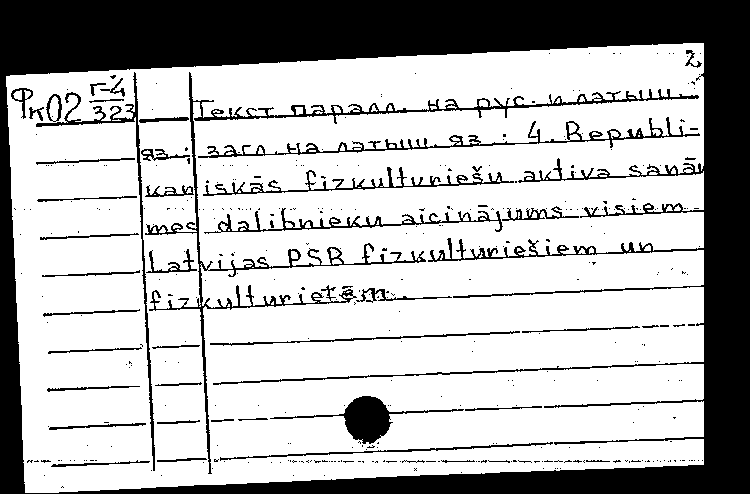 2
Фк02 г-4/323
Текст паралл. на рус. и латыш.
яз.; загл. на латыш. яз.: 4. Republi-
kaniskās fizkulturiešu aktiva sanāk
mes dalibnieku aicinājums visiem
Latvijas PSR fizkulturiešiem un
fizkulturietēm.